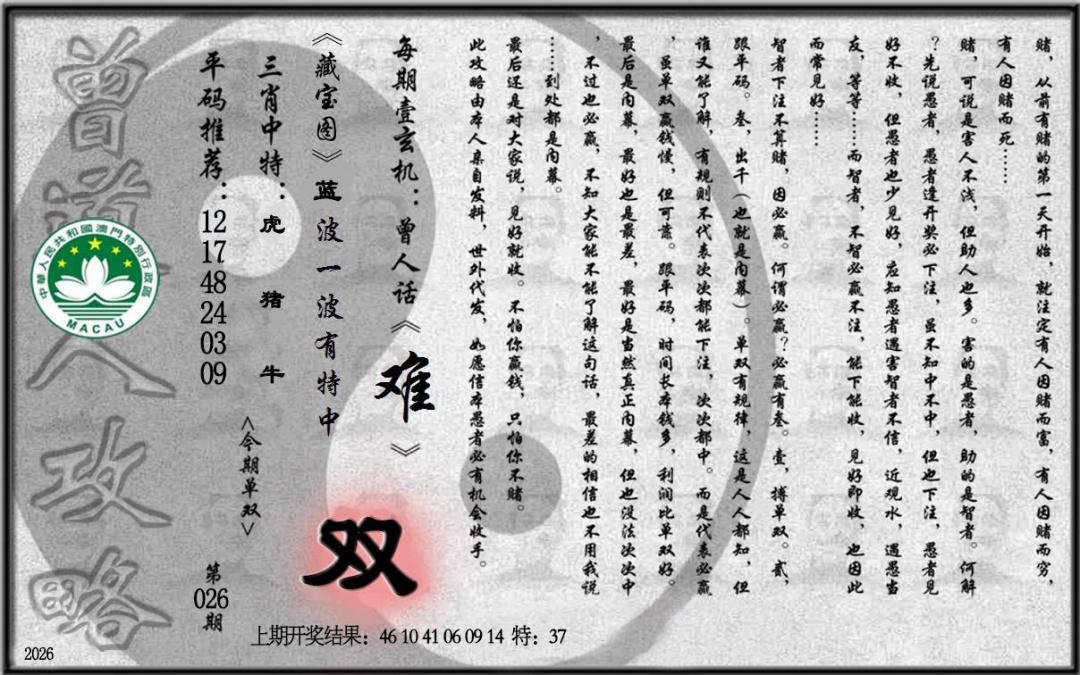 赌，从前有赌的第一天开始，就注定有人因赌而富，有人因赌而穷，
有人因赌而死……
赌，可说是害人不浅，但助人也多。害的是愚者，助的是智者。何解
？先说愚者，愚者逢开奖必下注，虽不知中不中，但也下注，愚者见
好不收，但愚者也少见好，应知愚者遇害智者不信，近观水，遇愚当
友，等等……而智者，不智必赢不注，能下能收，见好即收，也因此
而常见好……
智者下注不算赌，因必赢。何谓必赢？必赢有叁。壹，搏单双。贰，
跟平码。叁，出千（也就是内幕）。单双有规律，这是人人都知，但
谁又能了解，有规则不代表次次都能下注，次次都中。而是代表必赢
，虽单双赢钱慢，但可靠。跟平码，时间长本钱多，利润比单双好。
最后是内幕，最好也是最差，最好是当然真正内幕，但也没法次次中
，不过也必赢，不知大家能不能了解这句话，最差的相信也不用我说
……到处都是内幕。
最后还是对大家说，见好就收。不怕你赢钱，只怕你不赌。
此攻略由本人亲自发料，世外代发，如愿信本愚者必有机会收手。
每期壹玄机：曾人话《难》
《藏宝图》蓝波一波有特中
双
三肖中特：虎 猪 牛
<今期单双>
平码推荐：12 17 48 24 03 09
第026期
曾道人攻略
中華人民共和國澳門特別行政區
MACAU
上期开奖结果：46 10 41 06 09 14 特：37
2026